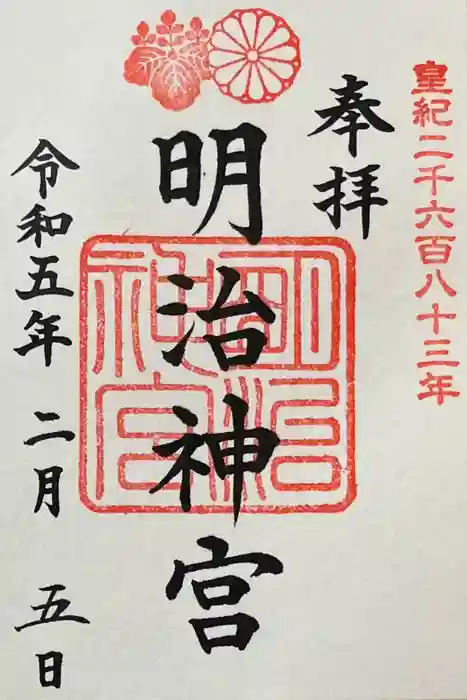 皇紀二千六百八十三年
奉拝
明治神宮
明治神宮
令和五年 二月 五日